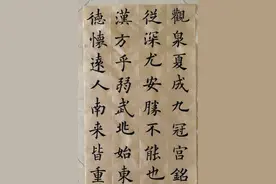 觀泉夏成九冠宫銘
從深尤安勝不能也
漢方乎弱武兆始東
德懷遠人南来皆重